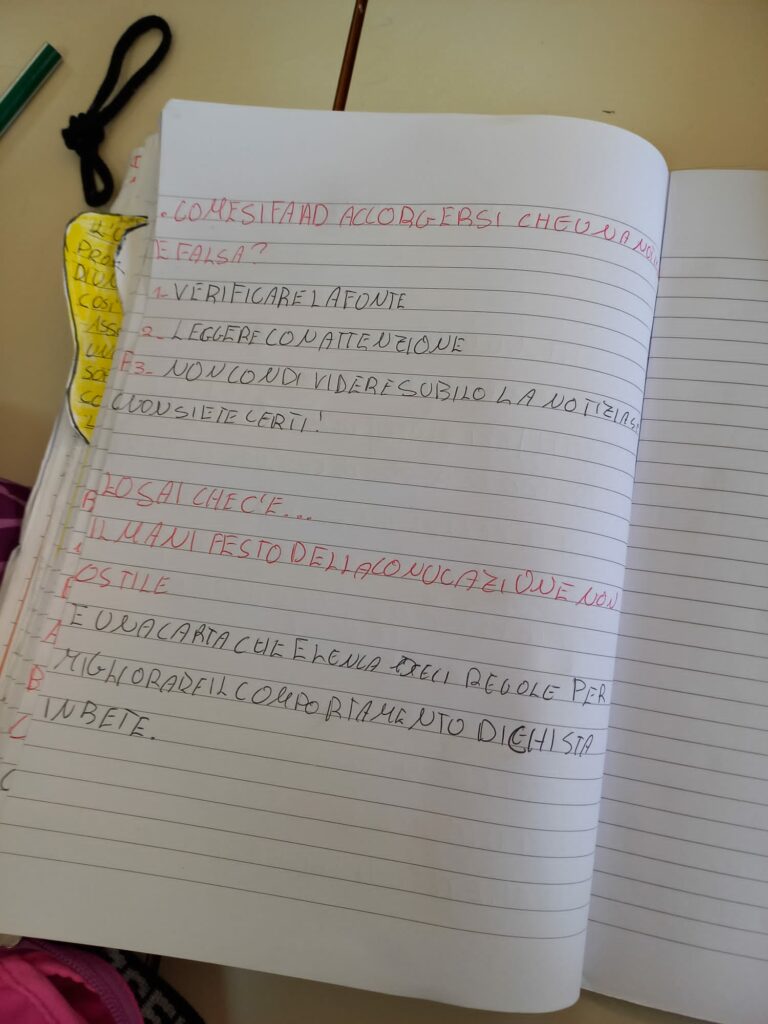 . COME SI FA AD ACCORGERSI CHE UNA
E FALSA?
1. VERIFICARE LA FONTE
2. LEGGERE CON ATTENZIONE
3. NON CONDIVIDERE SUBITO LA NOTIZIA
NON SIETE CERTI!
LO SAI CHE C'E...
IL MANIFESTO DELLA CONUCAZIONE NON
OSTILE
E UNA CARTA CHE ELENCA DIECI REGOLE PER
MIGLIORARE IL COMPORTAMENTO DI CHI STA
IN RETE.